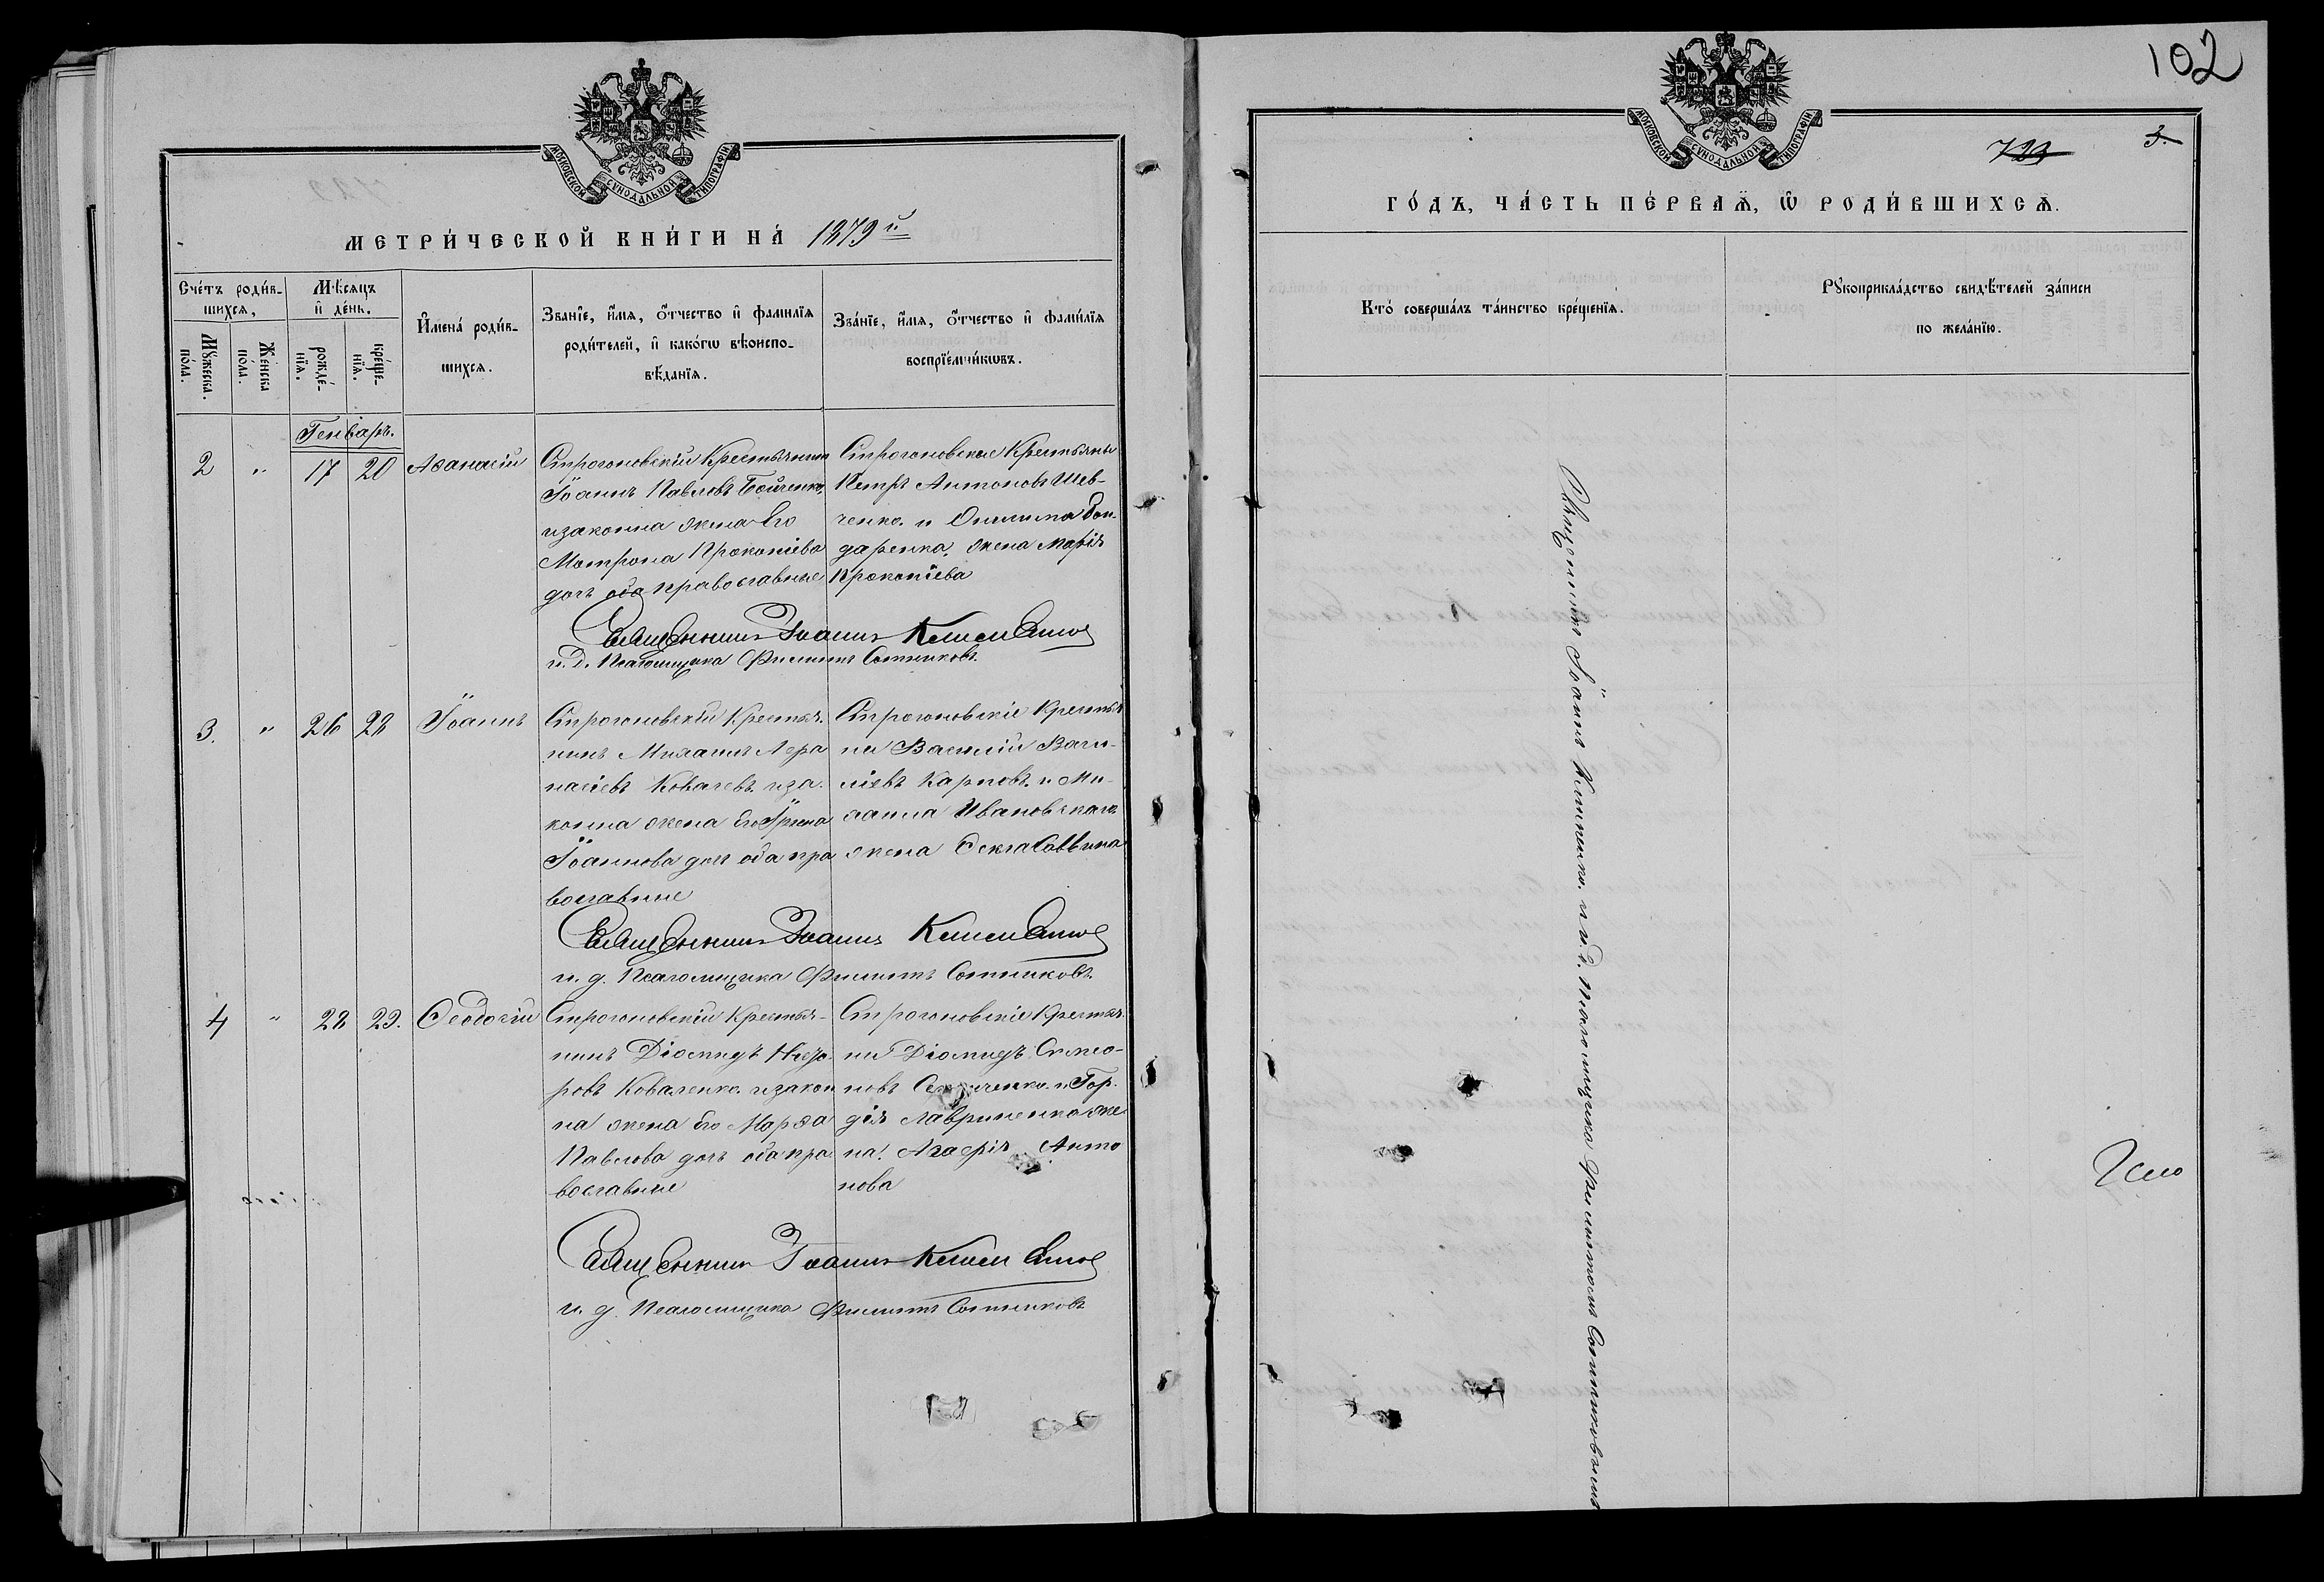 МОСКОВСКОЙ СУНОДАЛЬНОЙ ТИПОГРАФІИ
МЕТРИ́ЧЕСКОЙ КНИ́ГИ НА́ 1879 й
Сче́тъ роди́в-
шихся,
Мѣ́сяцъ
и де́нь.
Имена́ роди́в-
шихся.
Зва́нїе, и́мя, о́тчество и фами́лїя
роди́телей, и како́гѡ вѣроиспо-
вѣ́данїя.
Зва́нїе, и́мя, о́тчество и фами́лїя
воспрїе́мникѡвъ.
Мꙋ́жеска
по́ла.
Же́нска
по́ла.
рожде́-
нїя.
креще́-
нїя.
Генварь.
2 " 17 20 Аѳанасій
Строгоновскій Крестьянин
Іоаннъ Павловъ Бойченко,
изаконна жена Его
Мотрона Прокопіева
дочь оба православные
Строгоновские Крестьяны
Петръ Антоновъ Шев-
ченко. и Бон-
даренка, жена Марія
Прокопіева
Священникъ Іоаннъ
и. д. Псаломщика Филиппъ Сотниковъ.
3. " 26 28 Іоаннъ
Строгоновскій Крестья-
нинъ Михаилъ Аѳа
насіевъ Ковалевъ иза-
конна жена Его
Іоаннова доч оба пра
вославные
Строгоновскіе Крестья
ни Василій Васи-
ліевъ Карповъ. и Ми-
хаила Ивановскаго
жена
Священникъ Іоаннъ
и. д. Псаломщика Филиппъ Сотниковъ.
4 " 28 29. Ѳеодосій
Строгоновскій Крестья-
нинъ Діомидъ
ровъ Коваленко. изакон
на жена Его Марѳа
Павлова дочь оба пра
вославные
Строгоновскіе Крестья
ни Діомидъ Симео-
новъ и Гор-
дія Лавриненка же
на. Агафія Анто
нова
Священникъ Іоаннъ
и. д. Псаломщика Филиппъ Сотниковъ
102
3.
МОСКОВСКОЙ СУНОДАЛЬНОЙ ТИПОГРАФІИ
ГО́ДЪ, ЧА́СТЬ ПЕ́РВАЯ, Ѡ РОДИ́ВШИХСЯ.
Кто́ соверша́лъ та́инство креще́нїя.
Рꙋкоприкла́дство свидѣ́телей за́писи
по жела́нїю.
Священникъ Іоаннъ и и. д. Псаломщика Филиппомъ Сотниковымъ